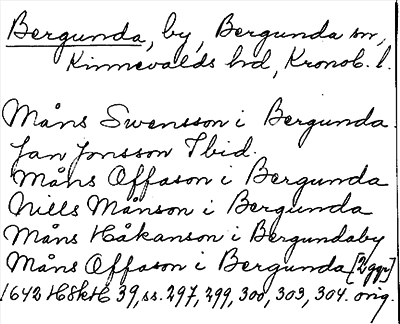 Bergunda, by, Bergunda sn,
Kinnevalds hd, Kronob. l.
Måns Swensson i Bergunda.
Jan Jonsson Ibid.
Måns Offason i Bergunda
Nills Månson i Bergunda
Måns Håkanson i Bergundaby
Måns Offason i Bergunda [2ggr]
1642 HSkH 39, ss. 297, 299, 300, 303, 304. orig.